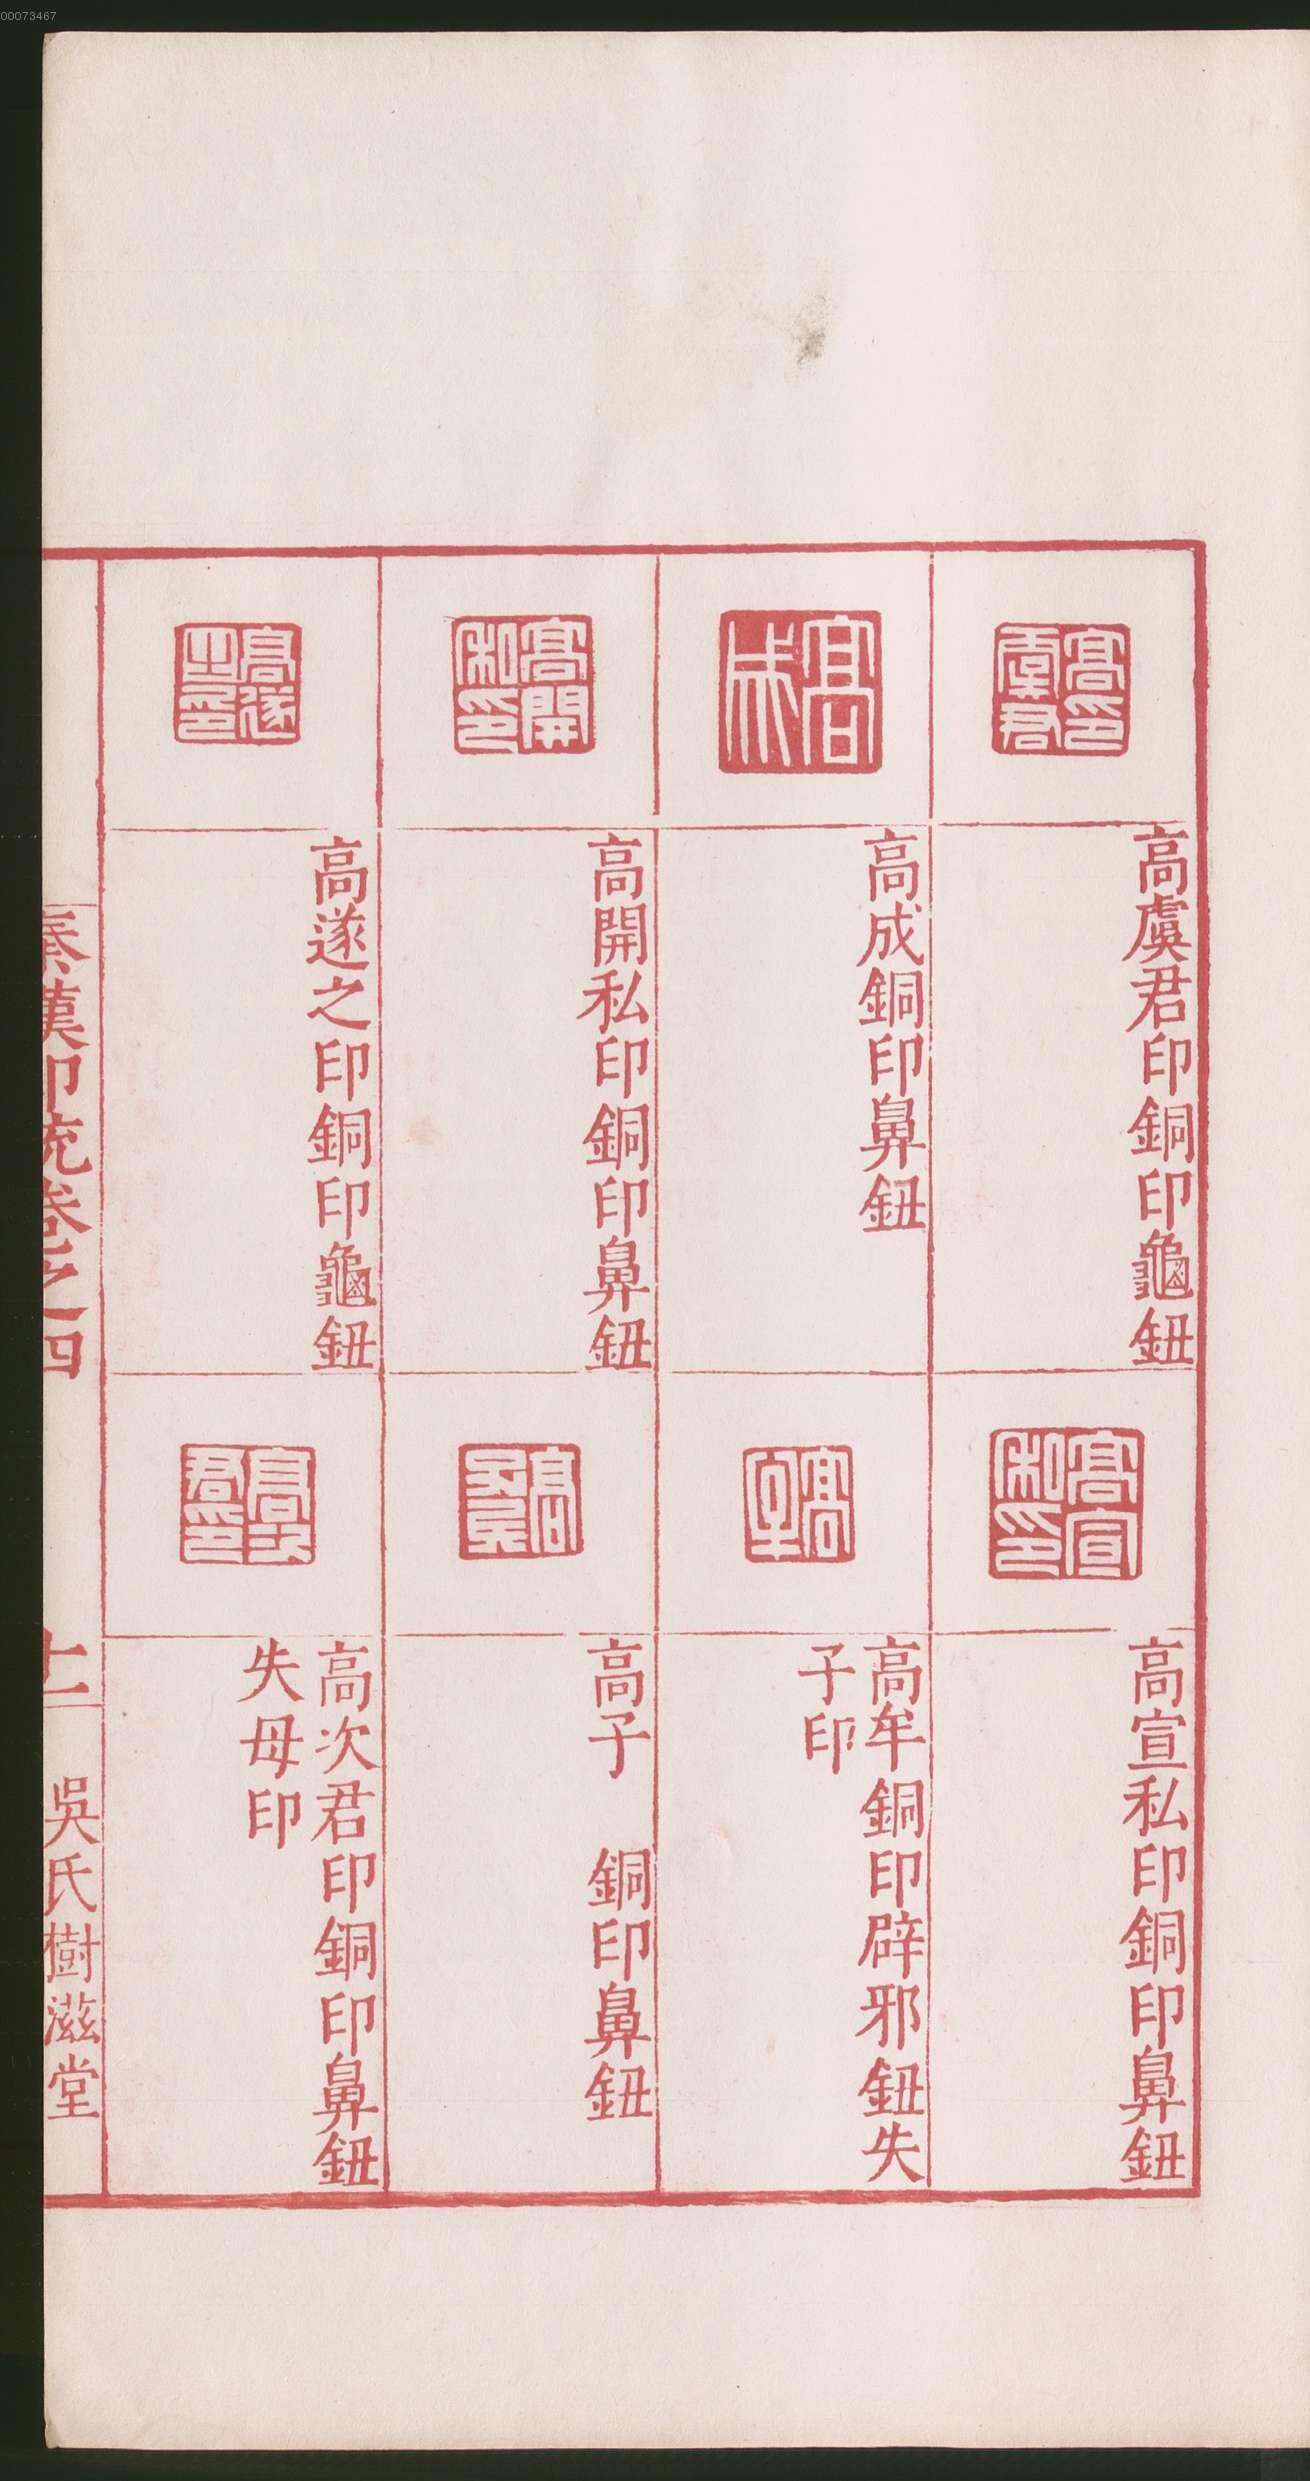 00073467
高虞君印銅印龜鈕
高成銅印鼻鈕
高開私印銅印鼻鈕
高遂之印銅印龜鈕
高宣私印銅印鼻鈕
高牟銅印辟邪鈕失
子印
高子　銅印鼻鈕
高次君印銅印鼻鈕
失母印
秦漢印統卷之四
十二
吳氏樹滋堂